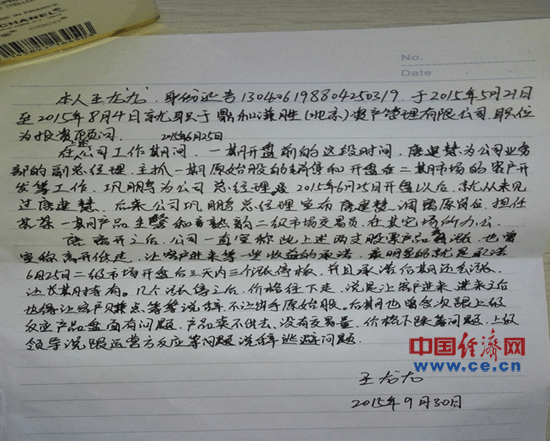 CHANEL
No.
Date
本人王龙龙,身份证号130406198804250319,于2015年5月21日
至2015年8月4日就职于鼎和谦胜(北京)资产管理有限公司,职位
为投资顾问。 2015年6月25日
在公司工作期间,一期开盘前的这段时间,唐建慧为公司业务
部的副总经理,主抓一期原始股的销售和开盘后二期市场的客户开
发等工作,巩鹏为公司总经理。2015年6月25日开盘以后,就从未见
过唐建慧,后来公司巩鹏总经理宣布唐建慧调离原岗位,担任
一期产品 二级市场交易员,在其它场所办公。
唐离开之后,公司一直宣称此上述两支股票产品 涨,也曾
宣称高开低走,让客户进来等一些收益的承诺,最明显的就是承诺
6月25日二级市场开盘后三天内三个涨停板,并且承诺后期还会涨,
让长期持有。几个涨停之后,价格往下走,说是让客户进来,进来之后
也得让客户 点等等说辞,不让出手原始股。后期也曾多次跟上级
反应产品盘面有问题,产品卖不出去,没有交易量,价格下跌等问题,上级
领导说跟运营方反应等问题说辞逃避问题。
王龙龙
2015年9月30日
中国经济网
www.ce.cn